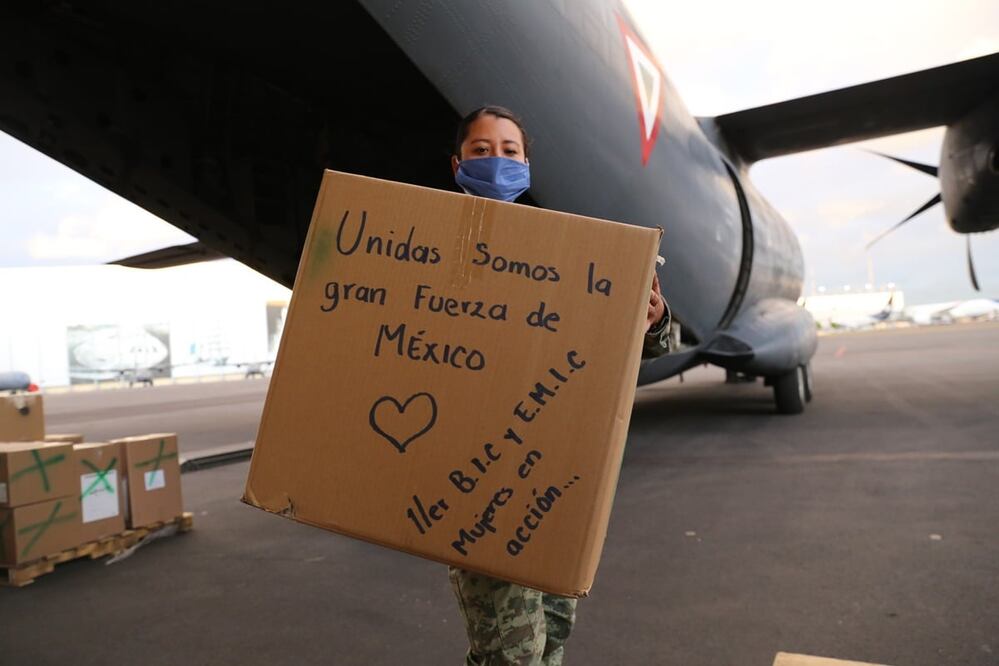 Unidas somos la
gran Fuerza de
México
1/er B.I.C y E.M.I.C
Mujeres en
acción...